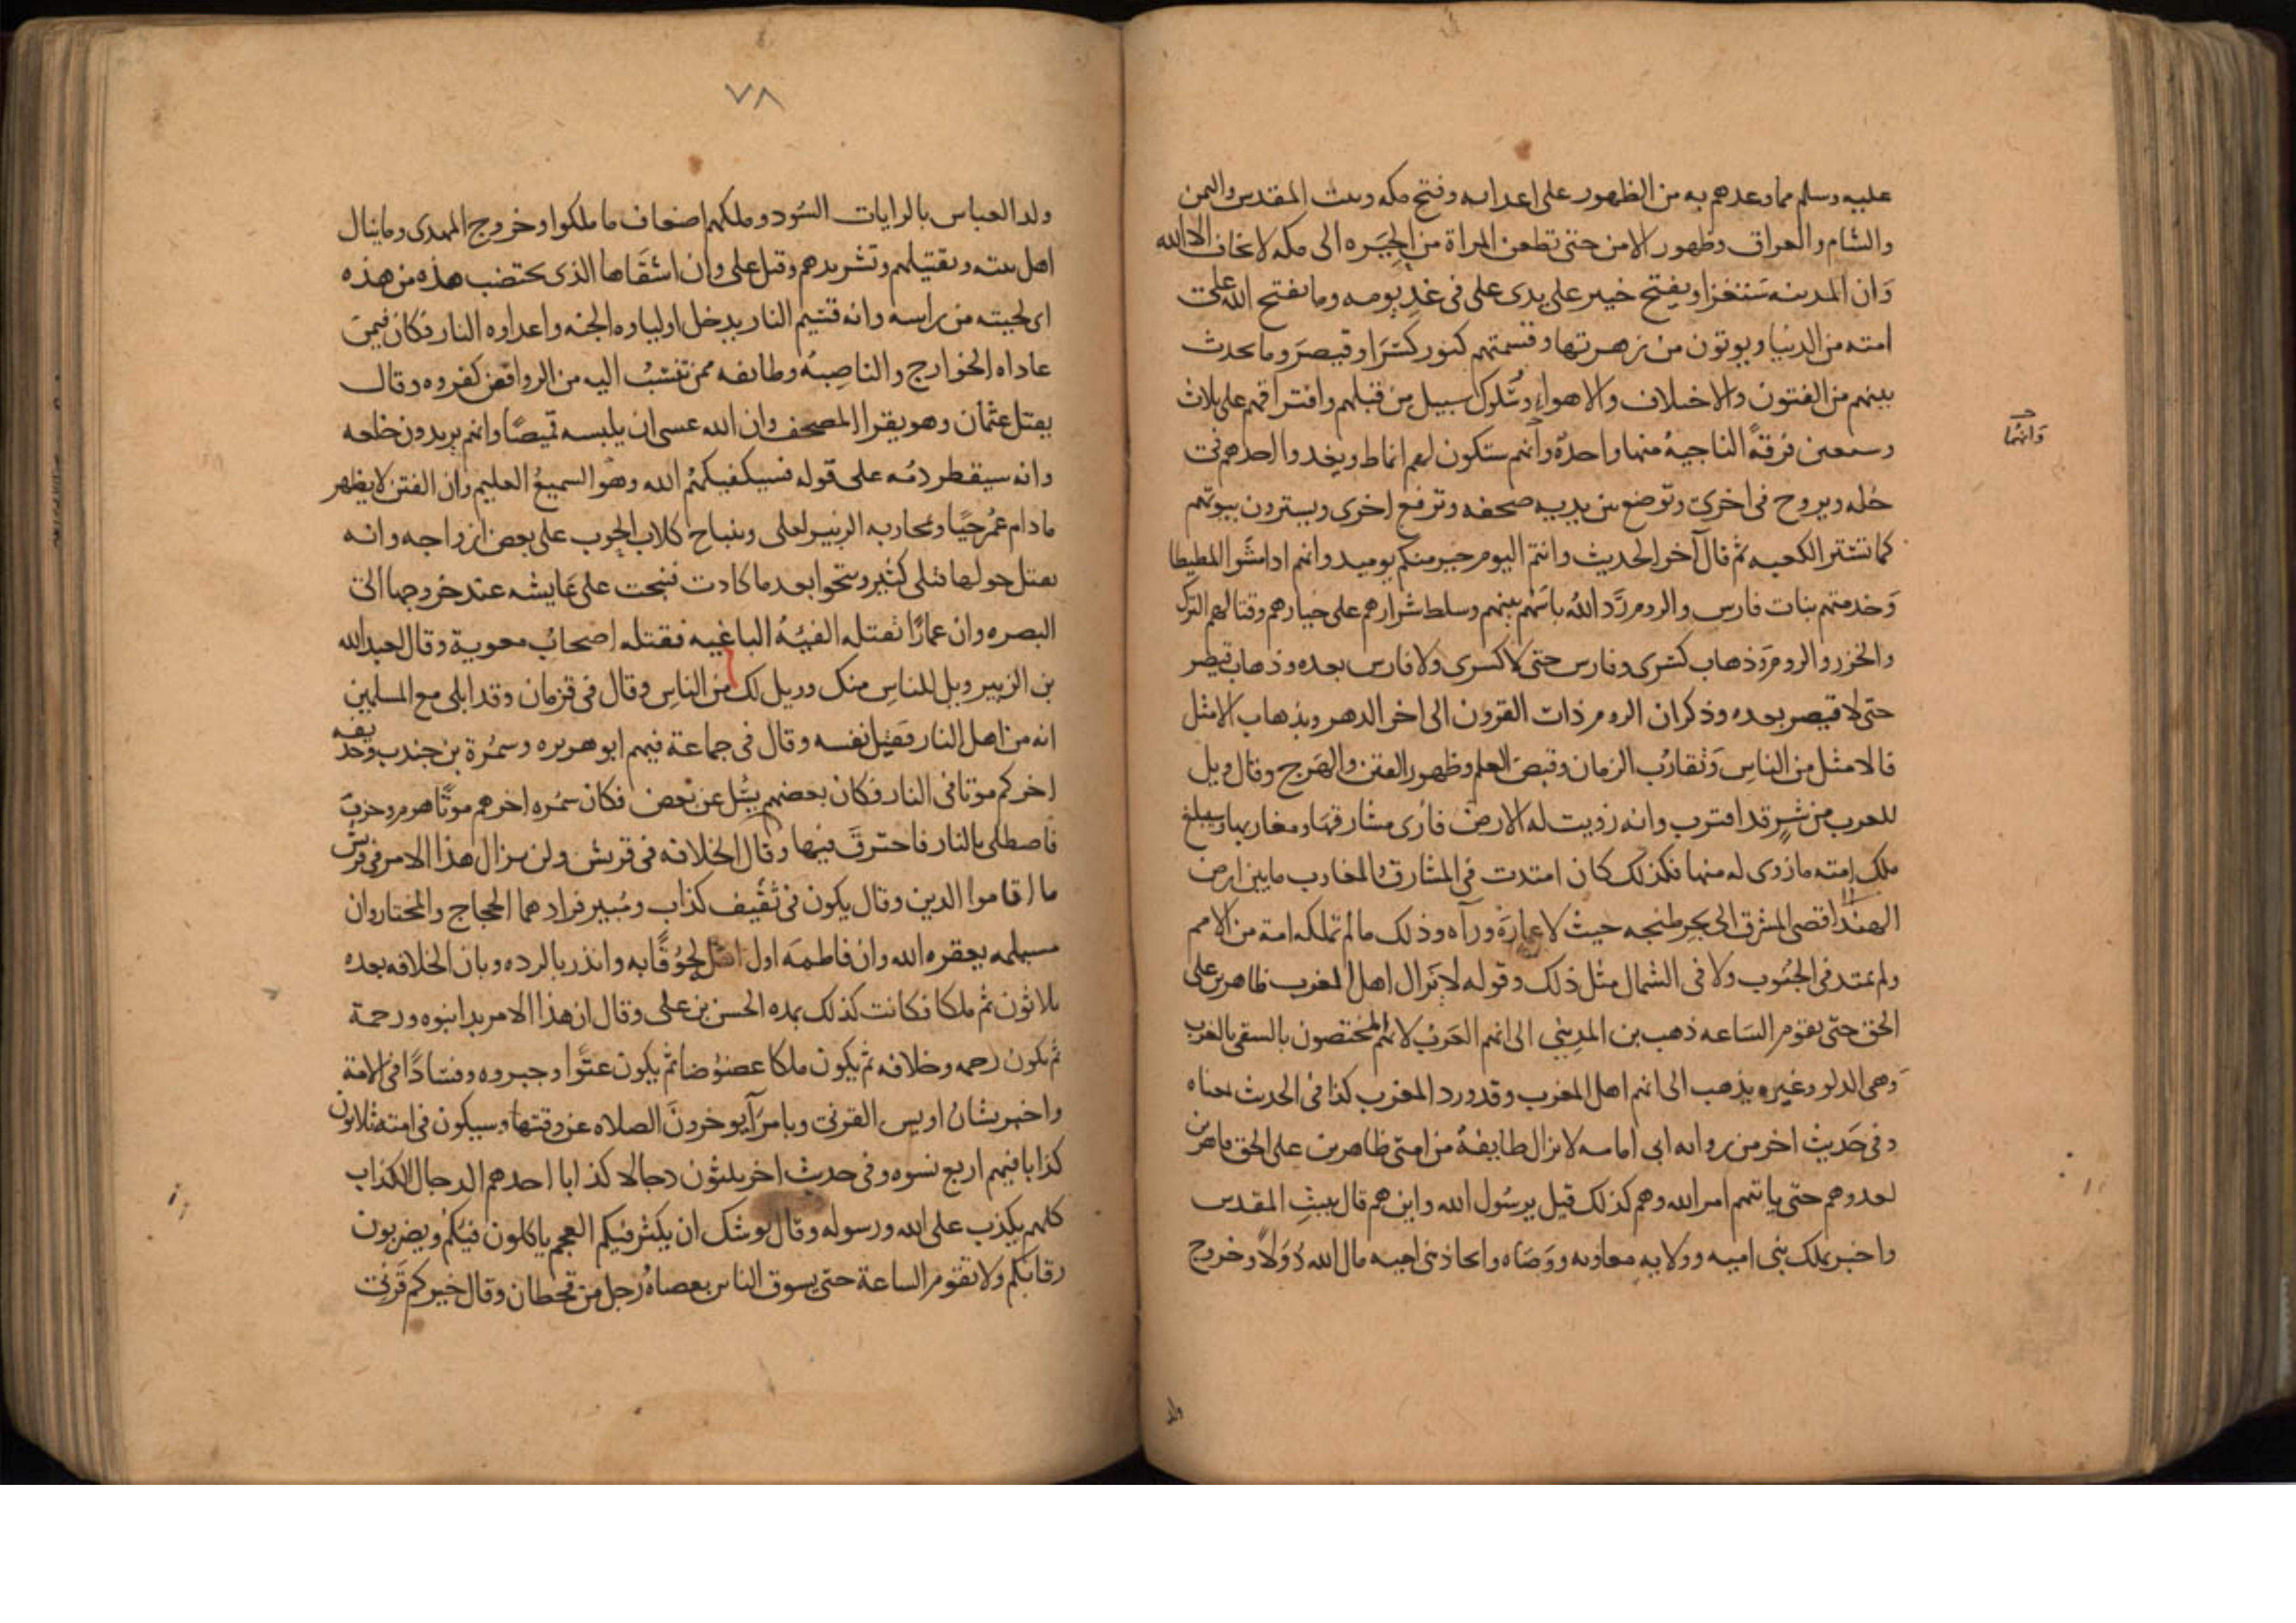 عليه وسلم مما وعدهم به من الظهور على اعدايه وفتح مكه وبيت المقدس واليمن
والشام والعراق وظهور الامن حتى تظعن المراة من الحيره الى مكه لا تخاف الا الله
وان المدينه ستغزا ويفتح خيبر على يدى على فى غد يومه وما يفتح الله على
امته من الدنيا ويوتون من زهرتها وقسمتهم كنوز كسرا وقيصر وما يحدث
بينهم من الفتون والاختلاف والاهواء وسلوك سبيل من قبلهم وافتراقهم على ثلاث
وسبعين فرقة الناجيه منها واحدة وانهم ستكون لهم انماط ويغدوا احدهم فى
وانهما
حله ويروح فى اخرى وتوضع بين يديه صحفه وترفع اخرى ويسترون بيوتهم
كما تستر الكعبه ثم قال آخر الحديث وانتم اليوم خير منكم يوميذ وانهم اذا مشوا المطيطا
وخدمتهم بنات فارس والروم رد الله باسهم بينهم وسلط شرارهم على خيارهم وقتالهم الترك
والخزر والروم وذهاب كسرى وفارس حتى لا كسرى ولا فارس بعده وذهاب قيصر
حتى لا قيصر بعده وذكر ان الروم ذات القرون الى اخر الدهر وبذهاب الامثل
فالامثل من الناس وتقارب الزمان وقبض العلم وظهور الفتن والهرج وقال ويل
للعرب من شر قد اقترب وانه زويت له الارض فارى مشارقها ومغاربها وسيبلغ
ملك امته ما زوى له منها فكذلك كان امتدت فى المشارق والمغارب ما بين ارض
الهند اقصى المشرق الى بحر طنجه حيث لا عمارة ورآه وذلك مالم تملكه امة من الامم
ولم تمتد فى الجنوب ولا فى الشمال مثل ذلك وقوله لا تزال اهل الغرب ظاهرين على
الحق حتى تقوم الساعه ذهب بن المديني الى انهم العرب لانهم المختصون بالسقى بالغرب
وهى الدلو وغيره يذهب الى انهم اهل المغرب وقد ورد المغرب كذا فى الحديث بمعناه
وفى حديث اخر من روايه ابى امامه لا تزال طايفة من امتى ظاهرين على الحق قاهرين
لعدوهم حتى ياتيهم امر الله وهم كذلك قيل يرسول الله واين هم قال ببيت المقدس
واخبر بملك بنى اميه وولايه معاويه ووصاه واتخاذ بنى اميه مال الله دولا وخروج
ولد
٧٨
ولد العباس بالرايات السود وملكهم اضعاف ما ملكوا وخروج المهدى وما ينال
اهل بيته وتقتيلهم وتشريدهم وقتل على وان اشقاها الذى يخضب هذه من هذه
اى لحيته من راسه وانه قسيم النار يدخل اولياوه الجنه واعداوه النار فكان فيمن
عاداه الخوارج والناصبه وطايفه ممن تنسب اليه من الروافض كفروه وقال
يقتل عثمان وهو يقرا المصحف وان الله عسى ان يلبسه قميصا وانهم يريدون خلعه
وانه سيقطر دمه على قوله فسيكفيكهم الله وهو السميع العليم وان الفتن لا يظهر
ما دام عمر حيا وبحاربه الزبير لعلى وبنباح كلاب الحوب على بعض ازواجه وانه
يقتل حولها قتلى كثير وتنجوا بعد ما كادت فنبحت على عايشه عند خروجها الى
البصره وان عمارا تقتله الفية الباغيه فقتله اصحاب معوية وقال لعبد الله
بن الزبير ويل للناس منك وويل لك من الناس وقال فى قزمان وقد ابلى مع المسلمين
انه من اهل النار فقتل نفسه وقال فى جماعة فيهم ابو هريره وسمرة بن جندب وحذيفه
اخركم موتا فى النار فكان بعضهم يسل عن بعض فكان سمره اخرهم موتا هرم وخرف
فاصطلى بالنار فاحترق فيها وقال الخلافه فى قريش ولن يزال هذا الامر فى قريش
ما اقاموا الدين وقال يكون فى ثقيف كذاب ومبير فراوهما الحجاج والمختار وان
مسيلمه يعقره الله وان فاطمة اول اهل لحوقا به وانذر بالرده وبان الخلافه بعده
ثلاثون ثم ملكا فكانت كذلك بمده الحسن بن على وقال ان هذا الامر بدا نبوه ورحمة
ثم يكون رحمه وخلافه ثم يكون ملكا عضوضا ثم يكون عتوا وجبروه وفسادا فى الامة
واخبر بشان اويس القرنى وبامرآ يوخرون الصلاه عن وقتها وسيكون فى امته ثلاثون
كذابا فيهم اربع نسوه وفى حديث اخر ثلثون دجالا كذابا احدهم الدجال الكذاب
كلهم يكذب على الله ورسوله وقال يوشك ان يكثر فيكم العجم ياكلون فيكم ويضربون
رقابكم ولا تقوم الساعة حتى يسوق الناس بعصاه رجل من قحطان وقال خيركم قرنى